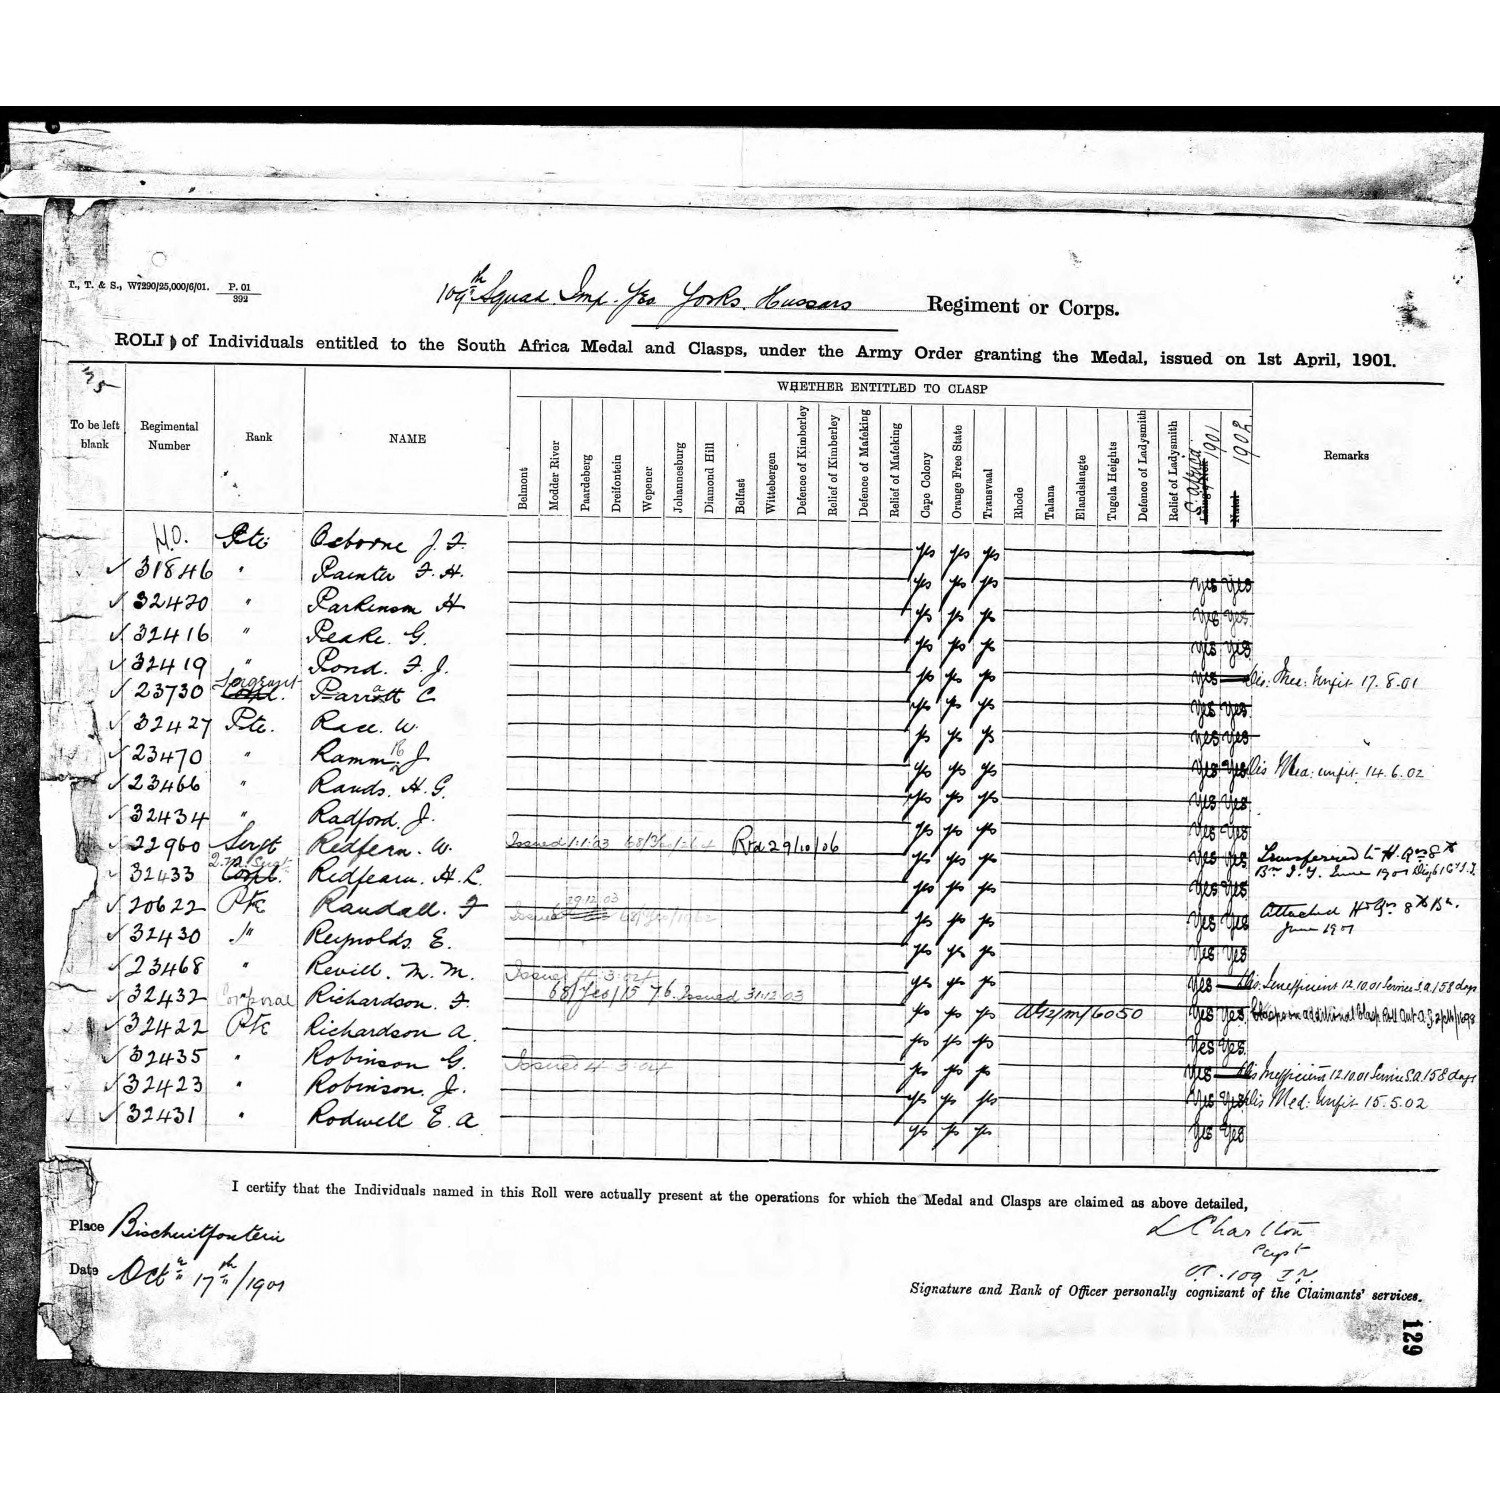 T., T. & S., W7290/25,000/6/01. P. 01 / 392
109th Squad Imp. Yeo Yorks. Hussars Regiment or Corps.
ROLL of Individuals entitled to the South Africa Medal and Clasps, under the Army Order granting the Medal, issued on 1st April, 1901.
WHETHER ENTITLED TO CLASP
To be left blank Regimental Number Rank NAME Belmont Modder River Paardeberg Dreifontein Wepener Johannesburg Diamond Hill Belfast Wittebergen Defence of Kimberley Relief of Kimberley Defence of Mafeking Relief of Mafeking Cape Colony Orange Free State Transvaal Rhode Talana Elandslaagte Tugela Heights Defence of Ladysmith Relief of Ladysmith S. Africa 1901 Natal 1902 Remarks
H.O. Pte Osborne J. F. yes yes yes
31846 " Painter F. H. yes yes yes yes yes
32420 " Parkinson H yes yes yes yes yes
32416 " Peake. G. yes yes yes yes yes
32419 " Pond. F. J. yes yes yes yes Dis: Med: Unfit 17.8.01
23730 Sergeant Corpl. Parratt C yes yes yes yes yes
32427 Pte. Race. W. yes yes yes yes yes
23470 " Ramm. J yes yes yes yes yes Dis Med: unfit 14.6.02
23466 " Rands. H. G. yes yes yes yes yes
32434 " Radford. J. yes yes yes yes yes
22960 Sergt Redfern. W. Issued 1.1.03 Rtd 29/10/06 yes yes yes yes yes Transferred to H. Qrs 8th Bn I.Y. June 1901
32433 Corpl. Redfearn. H. L. yes yes yes yes yes
20622 Pte Randall. F Issued 29.12.03 yes yes yes yes yes Attached Hd Qrs 8th Bn. June 1901
32430 " Reynolds. E. yes yes yes yes yes
23468 " Revill. M. M. Issued 4.3.04 yes yes yes yes Dis: Inefficient 12.10.01 Service S.A. 158 days
32432 Corporal Richardson. F. 68/Yeo/1576. Issued 31.12.03 yes yes yes A412/M/6050 yes yes
32422 Pte Richardson A. yes yes yes yes yes
32435 " Robinson G. Issued 4.3.04 yes yes yes yes Dis Inefficient 12.10.01 Service S.A. 158 days
32423 " Robinson. J. yes yes yes yes yes Dis Med: Unfit 15.5.02
32431 " Rodwell E. A. yes yes yes yes yes
I certify that the Individuals named in this Roll were actually present at the operations for which the Medal and Clasps are claimed as above detailed,
Place Bischuitfontein
L Charlton
Capt
Date Oct 17th/1901
O.C. 109 I.Y.
Signature and Rank of Officer personally cognizant of the Claimants' services.
129